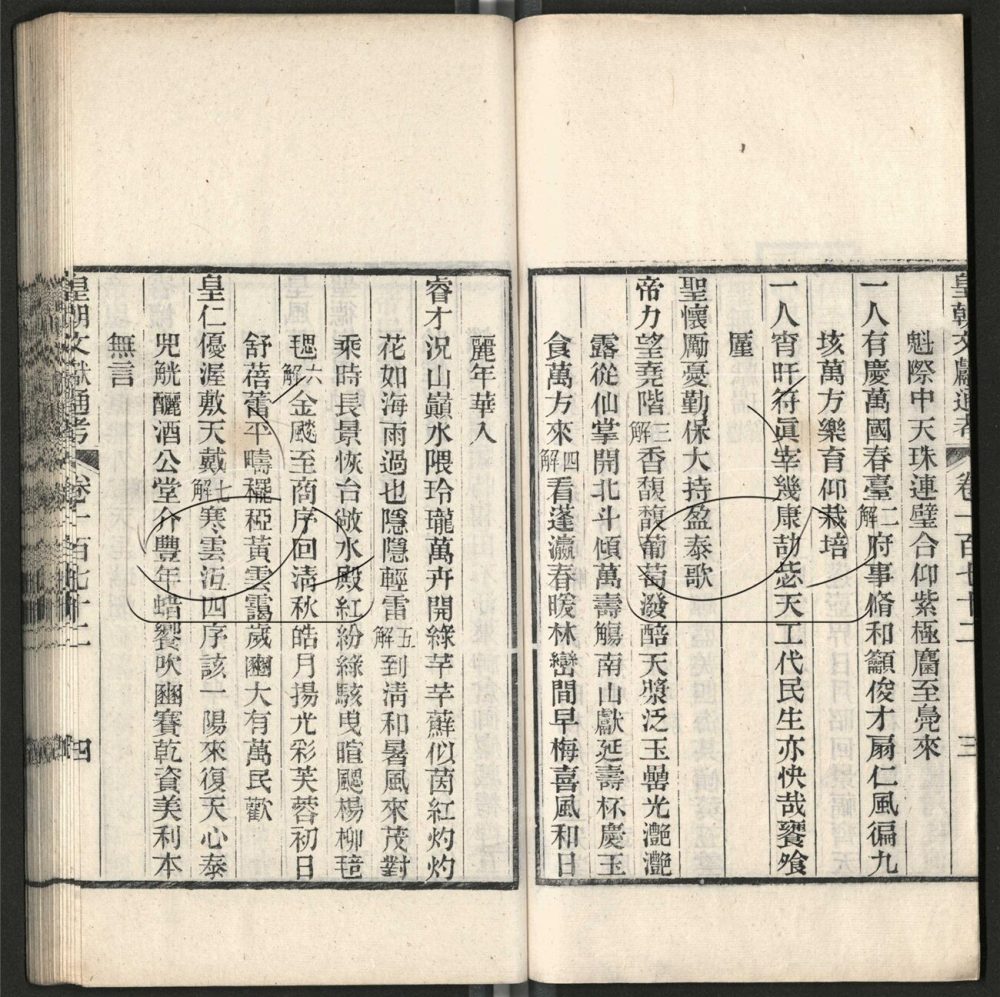 皇朝文獻通考 卷一百七十二 三
魁際中天珠連璧合仰紫極麕至鳧來
一人有慶萬國春臺二解府事脩和籲俊才扇仁風徧九
垓萬方樂育仰栽培
一人宵旰符眞宰幾康劼毖天工代民生亦快哉饔飧
厪
聖懷勵憂勤保大持盈泰歌
帝力望堯階三解香馥馥葡萄潑醅天漿泛玉罍光灔灔
露從仙掌開北斗傾萬壽觴南山獻延壽杯慶玉
食萬方來四解看蓬瀛春暖林巒間早梅喜風和日
麗年華入
睿才況山巔水隈玲瓏萬卉開綠芊芊蘚似茵紅灼灼
花如海雨過也隱隱輕雷五解到淸和暑風來茂對
乘時長景恢台敞水殿紅紛綠駭曳暄颸楊柳毰
毸六解金飈至商序回淸秋皓月揚光彩芙蓉初日
舒蓓蕾平疇䆉稏黃雲靄歲豳大有萬民歡
皇仁優渥敷天戴七解寒雲沍四序該一陽來復天心泰
兕觥釃酒公堂介豐年蜡饗吹豳賽乾資美利本
無言
皇朝文獻通考 卷一百七十二 四